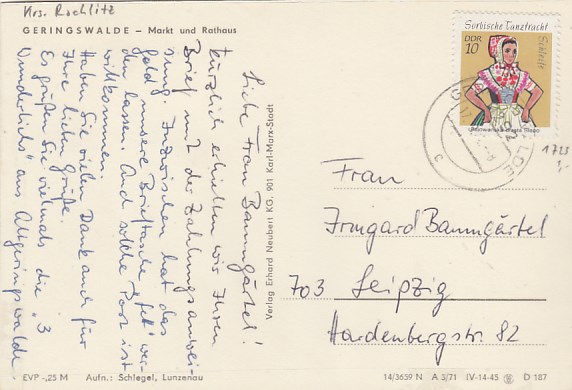 Krs. Rochlitz
GERINGSWALDE – Markt und Rathaus
Liebe Frau Baumgärtel!
Kürzlich erhielten wir Ihren
Brief mit der Zahlungsanwei-
sung. Inzwischen hat das
Geld unsere Brieftasche "fett" wer-
den lassen. Auch solche Post ist
willkommen.
Haben Sie vielen Dank auch für
Ihre lieben Grüße.
Es grüßen Sie vielmals die "3
Wunderlichs" aus Altgeringswalde
Verlag Erhard Neubert KG, 901 Karl-Marx-Stadt
Sorbische Tanztracht
DDR
10
Schleife
1723
Frau
Irmgard Baumgärtel
703 Leipzig
Hardenbergstr. 82
EVP -,25 M Aufn.: Schlegel, Lunzenau
14/3659 N A 3/71 IV-14-45 D 187